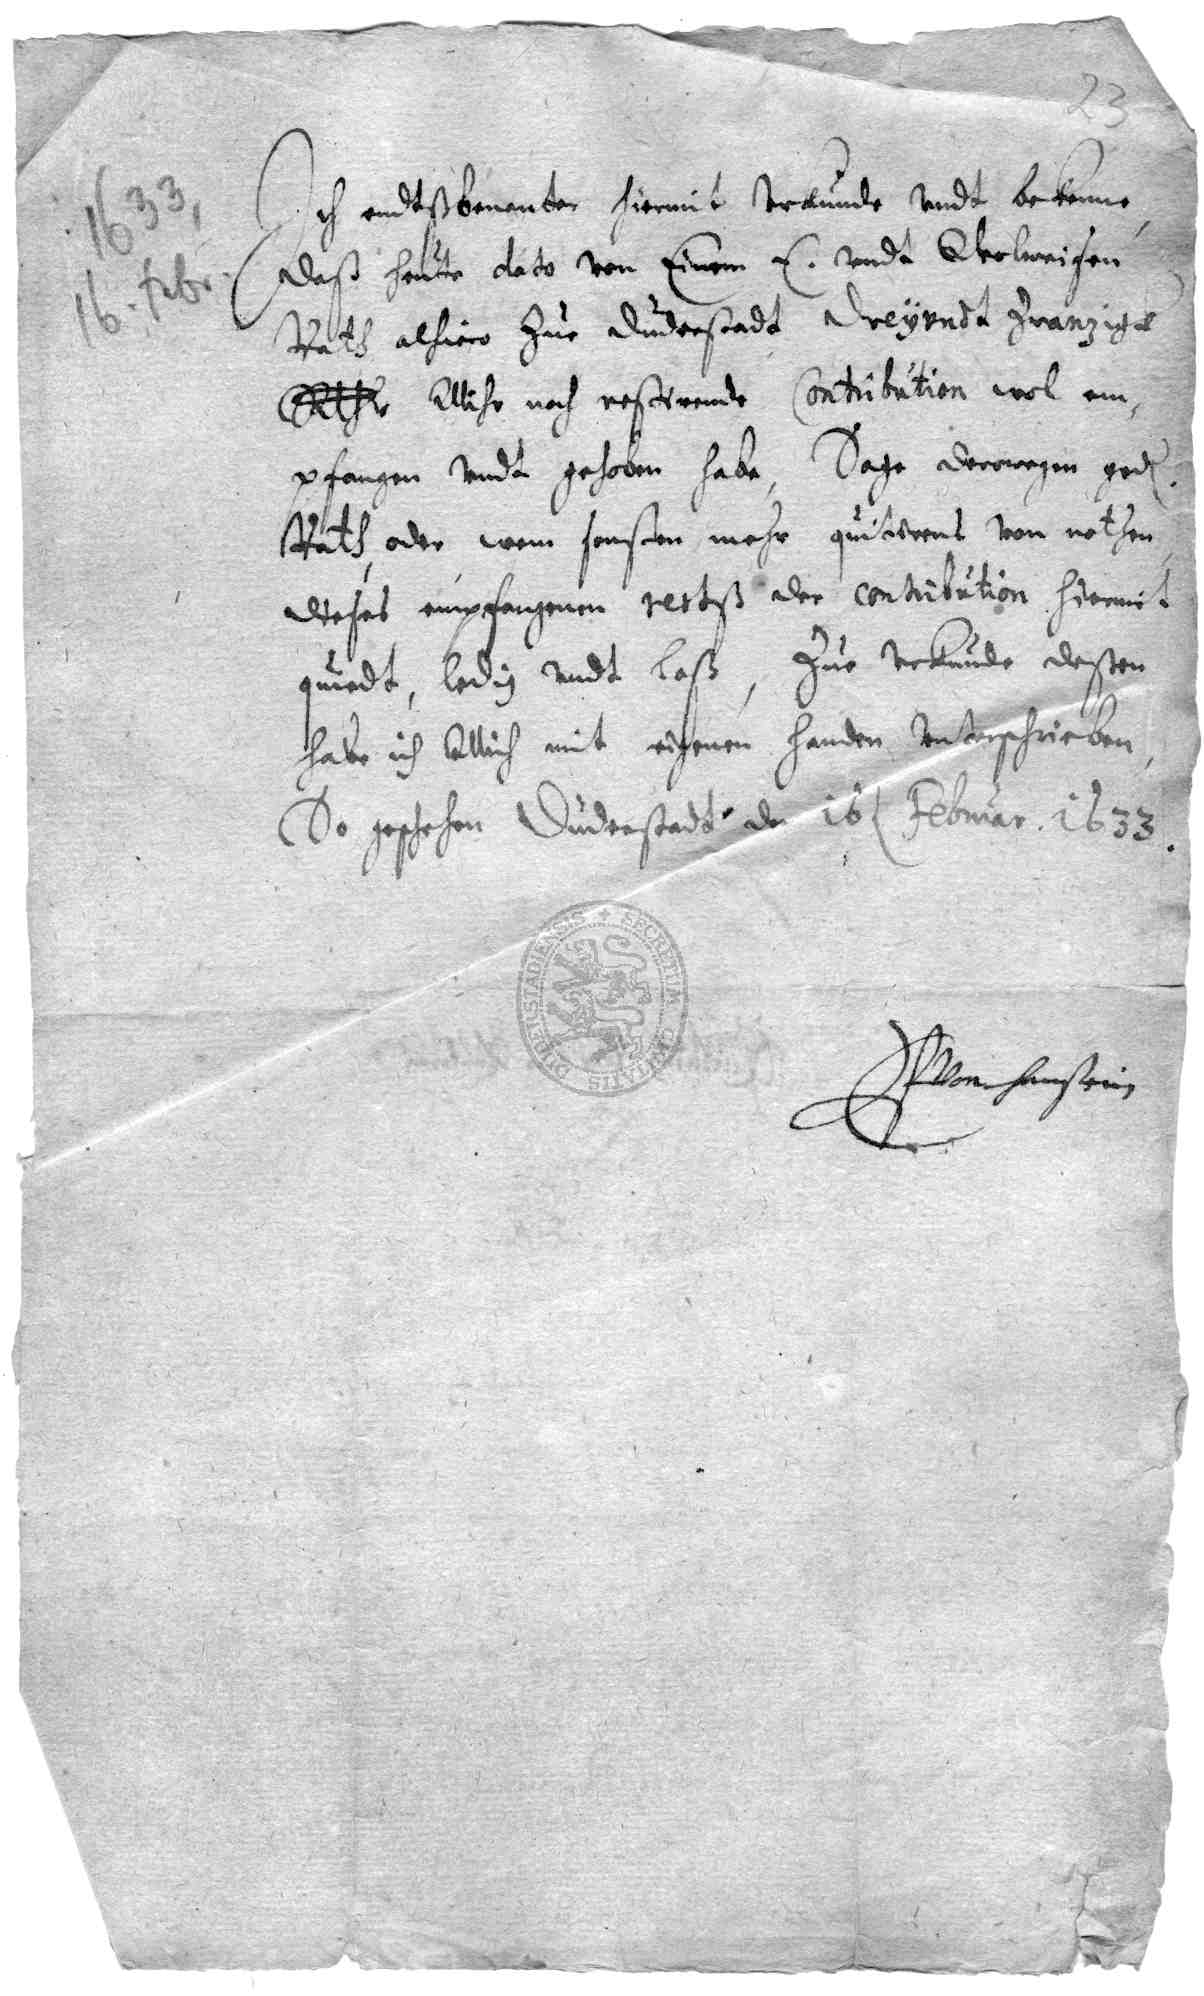 23
1633,
16. febr.
Ich endtßbenanter hiermit Urkunde undt bekenne,
daß heute dato von Einem E. undt Wolweisen
Rath alhiero Zue Duderstadt, dreyundt Zwanzig
Mihr noch restirende Contribution wol em,
pfangen undt gehoben habe, Sage derowegen ged.
Rath, oder wem sonsten mehr quitirens von nothen,
dieses empfangenen restß der contribution hiermit
quiedt, ledig undt loß, Zue Urkunde deßen
habe ich Mich mit eigenen handen unterschrieben,
So geschehen Duderstadt den 16 Februar. 1633.
SECRETUM CIVITATIS DUDERSTADIENSIS
von hanstein